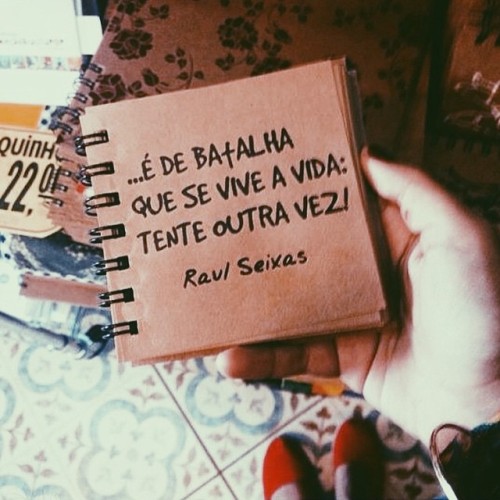 ...É DE BATALHA
QUE SE VIVE A VIDA:
TENTE OUTRA VEZ!
Raul Seixas
QUINH
22,0